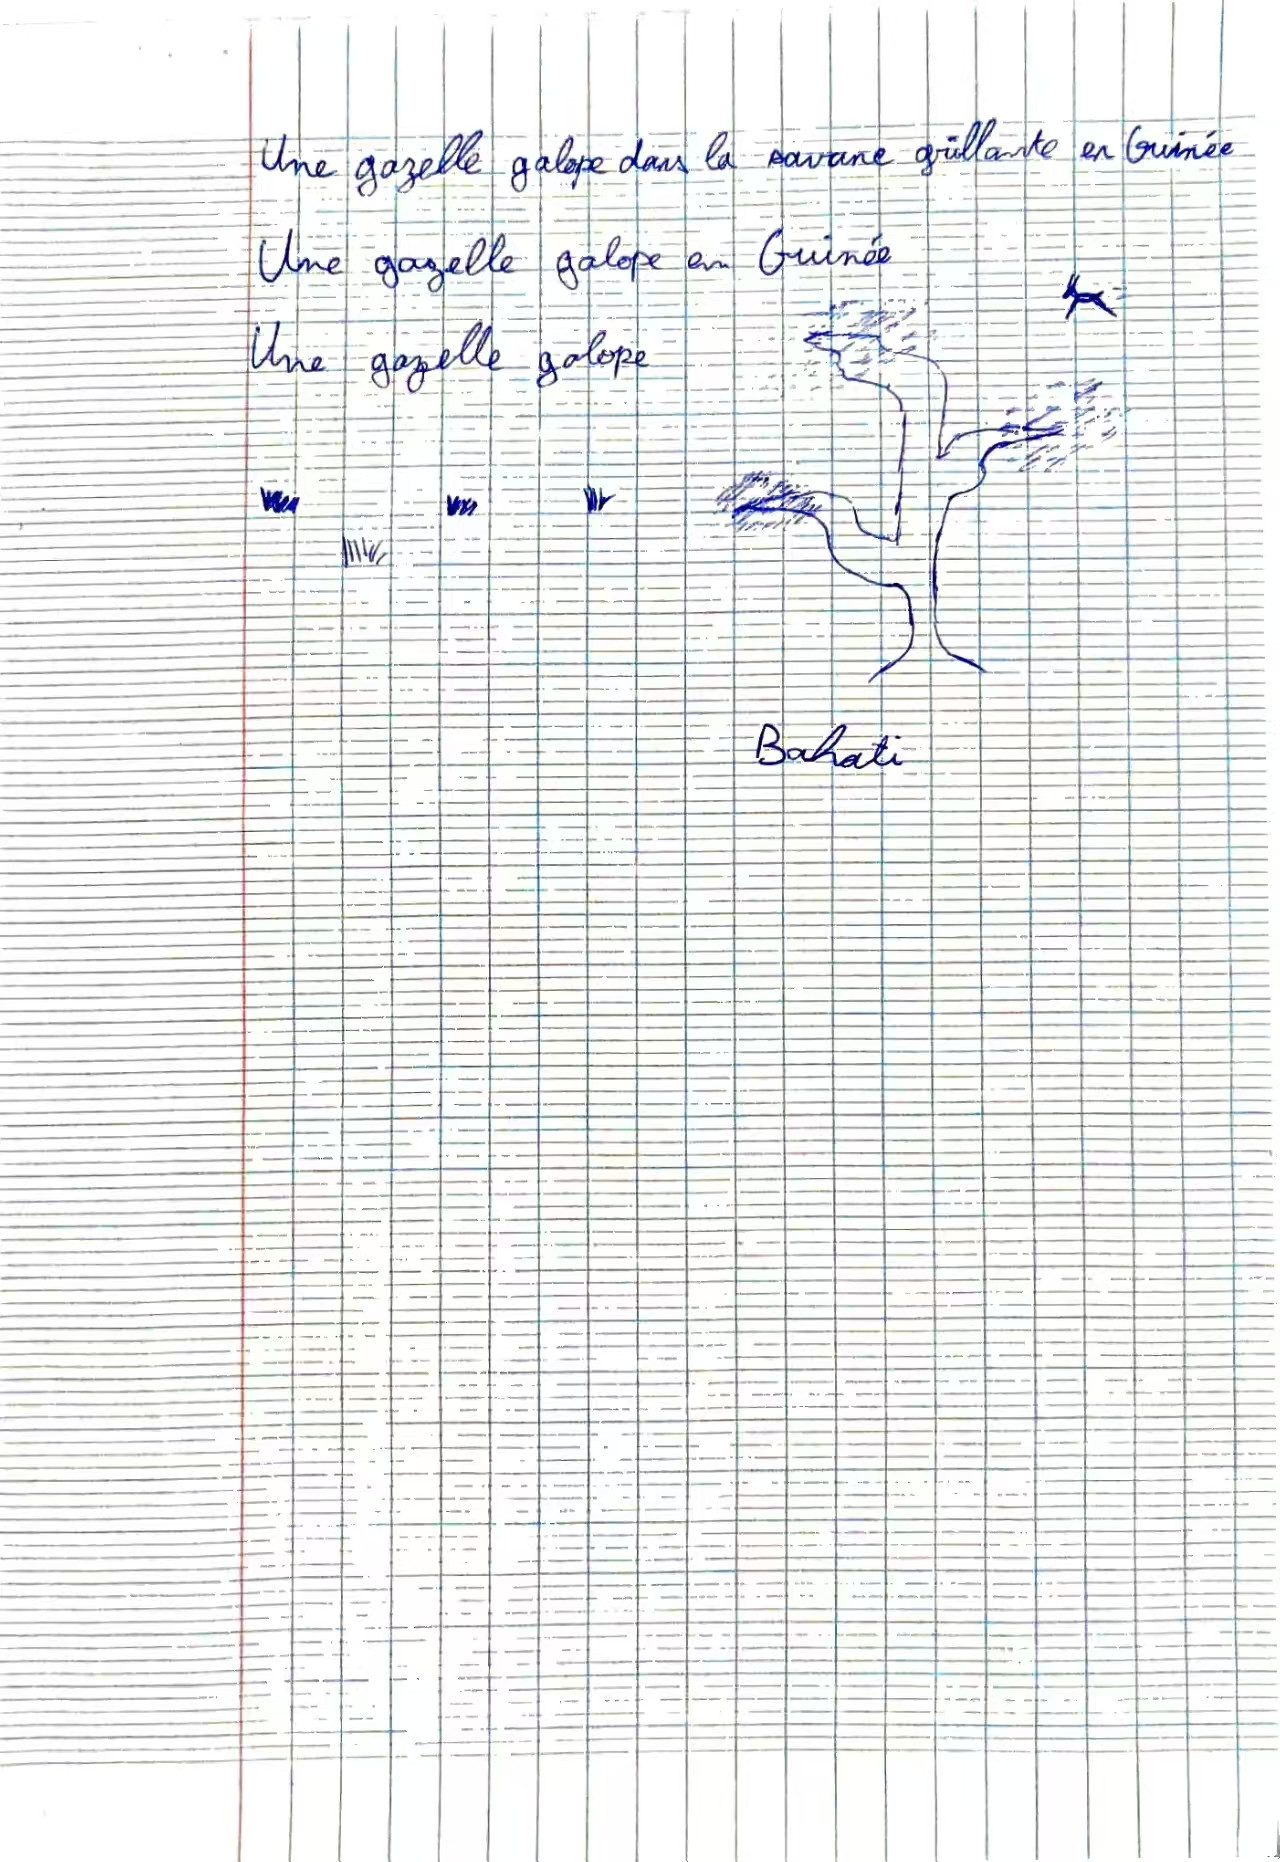 Une gazelle galope dans la savane grillante en Guinée
Une gazelle galope en Guinée
Une gazelle galope
Bahati